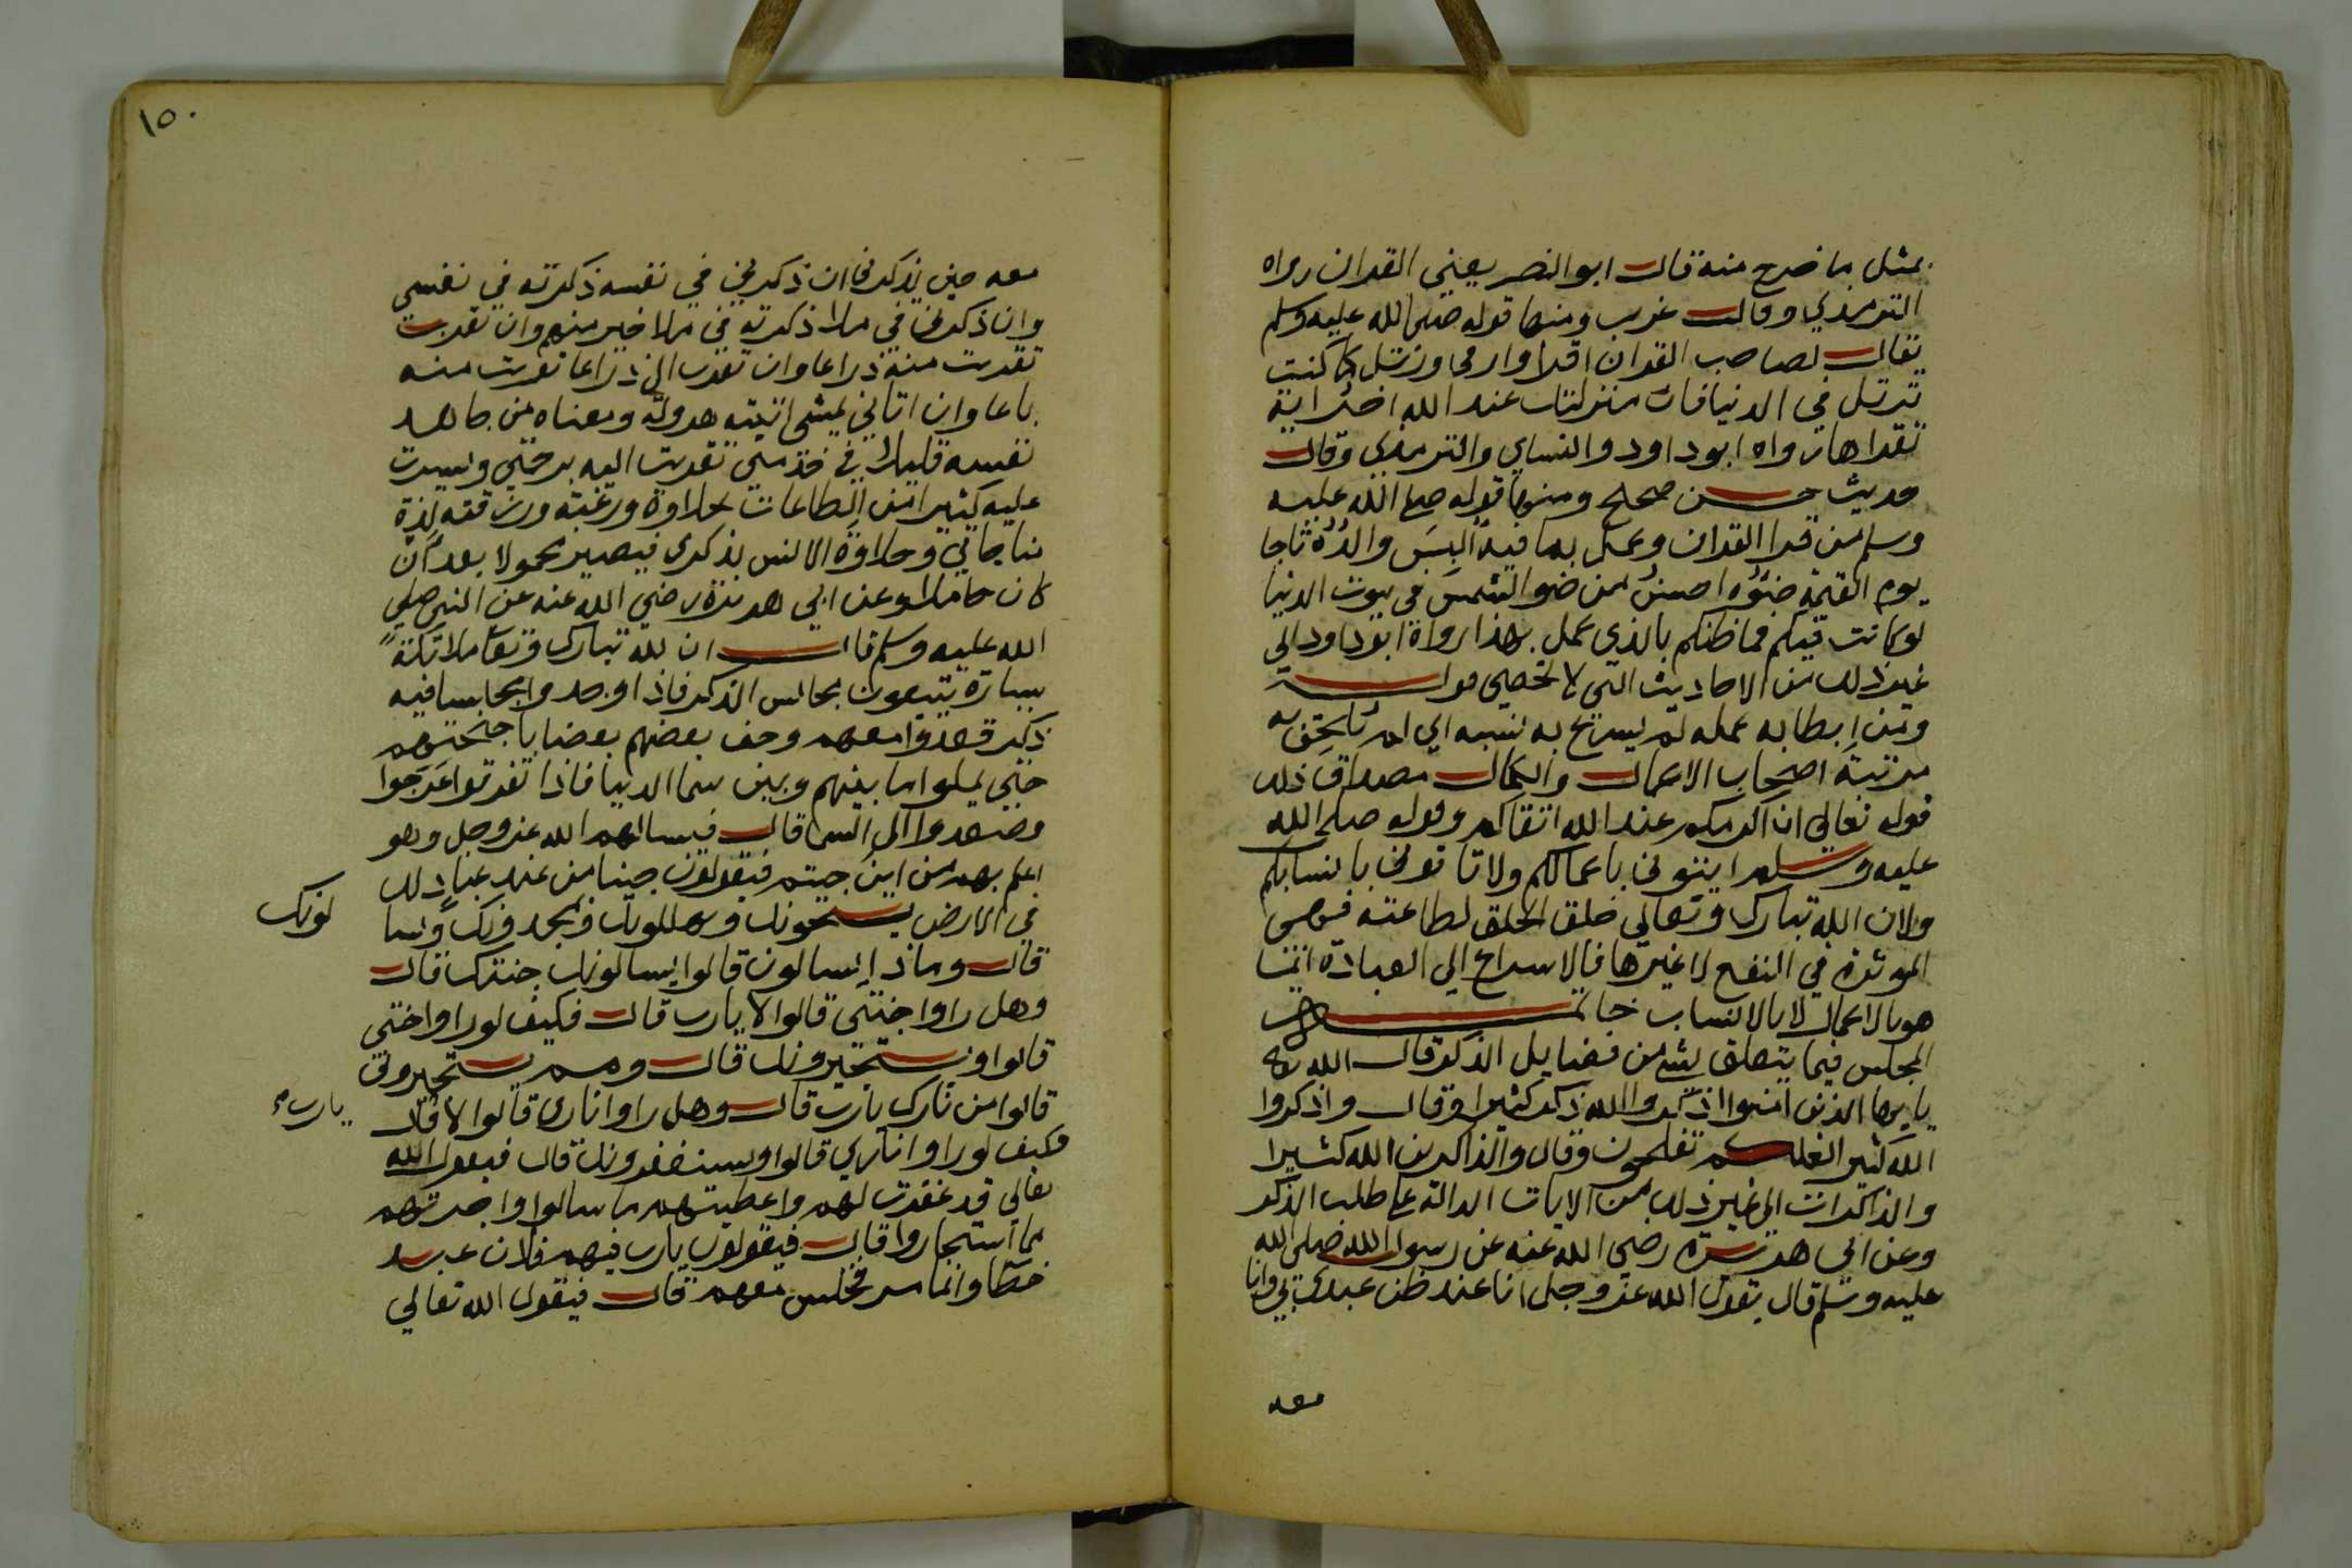 بمثل ما خرج منه قال ابو النصر يعني القران رواه
الترمذي وقال غريب ومنها قوله صلى الله عليه وسلم
يقال لصاحب القران اقرا وارقى ورتل كما كنت
ترتل في الدنيا فان منزلتك عند الله اخر اية
تقراها رواه ابو داود والنساي والترمذي وقال
حديث حسن صحيح ومنها قوله صلى الله عليه
وسلم من قرا القران وعمل بما فيه البس والداه تاجا
يوم القيمة ضوه احسن من ضو الشمس في بيوت الدنيا
لو كانت فيكم فما ظنكم بالذي عمل بهذا رواه ابو داود الى
غير ذلك من الاحاديث التي لا تحصى
ومن ابطا به عمله لم يسرع به نسبه اي لم يلحق به
مرتبة اصحاب الاعمال والكمال مصداق ذلك
قوله تعالى ان اكرمكم عند الله اتقاكم وقوله صلى الله
عليه وسلم ايتوني باعمالكم ولا تاتوني بانسابكم
ولان الله تبارك وتعالى خلق الخلق لطاعته فهي
الموثرة في النفع لا غيرها فالاسراع الى العبادة انما
هو بالاعمال لا بالانساب خاتمة
المجلس فيما يتعلق بشي من فضايل الذكر قال الله تعالى
يا يها الذين امنوا اذكروا الله ذكرا كثيرا وقال واذكروا
الله كثيرا لعلكم تفلحون وقال والذاكرين الله كثيرا
والذاكرات الى غير ذلك من الايات الدالة على طلب الذكر
وعن ابي هريرة رضي الله عنه عن رسول الله صلى الله
عليه وسلم قال يقول الله عز وجل انا عند ظن عبدي بي وانا
معه
١٥٠
معه حين يذكرني ان ذكرني في نفسه ذكرته في نفسي
وان ذكرني في ملا ذكرته في ملا خير منهم وان تقرب
تقربت منه ذراعا وان تقرب الي ذراعا تقربت منه
باعا وان اتاني يمشي اتيته هرولة ومعناه من جاهد
نفسه قليلا في خدمتي تقربت اليه برحمتي ويسرت
عليه كثيرا من الطاعات بحلاوة ورغبة ورزقته لذة
مناجاتي وحلاوة الانس بذكري فيصير محمولا بعد ان
كان حاملا وعن ابي هريرة رضي الله عنه عن النبي صلى
الله عليه وسلم قال ان لله تبارك وتعالى ملائكة
سيارة يتبعون مجالس الذكر فاذا وجدوا مجلسا فيه
ذكر قعدوا معهم وحف بعضهم بعضا باجنحتهم
حتى يملوا ما بينهم وبين سما الدنيا فاذا تفرقوا عرجوا
وصعدوا الى السما قال فيسالهم الله عز وجل وهو
اعلم بهم من اين جيتم فيقولون جينا من عند عباد لك
في الارض يسبحونك ويهللونك ويمجدونك ويسا
لونك
قال وماذا يسالون قالوا يسالونك جنتك قال
وهل راوا جنتي قالوا لا يا رب قال فكيف لو راوا جنتي
قالوا ويستجيرونك قال ومم يستجيروني
قالوا من نارك يا رب قال وهل راوا ناري قالوا لا قال
يا رب
فكيف لو راوا ناري قالوا ويستغفرونك قال فيقول الله
تعالى قد غفرت لهم واعطيتهم ما سالوا واجرتهم
مما استجاروا قال فيقولون يا رب فيهم فلان عبد
خطا وانما مر فجلس معهم قال فيقول الله تعالى